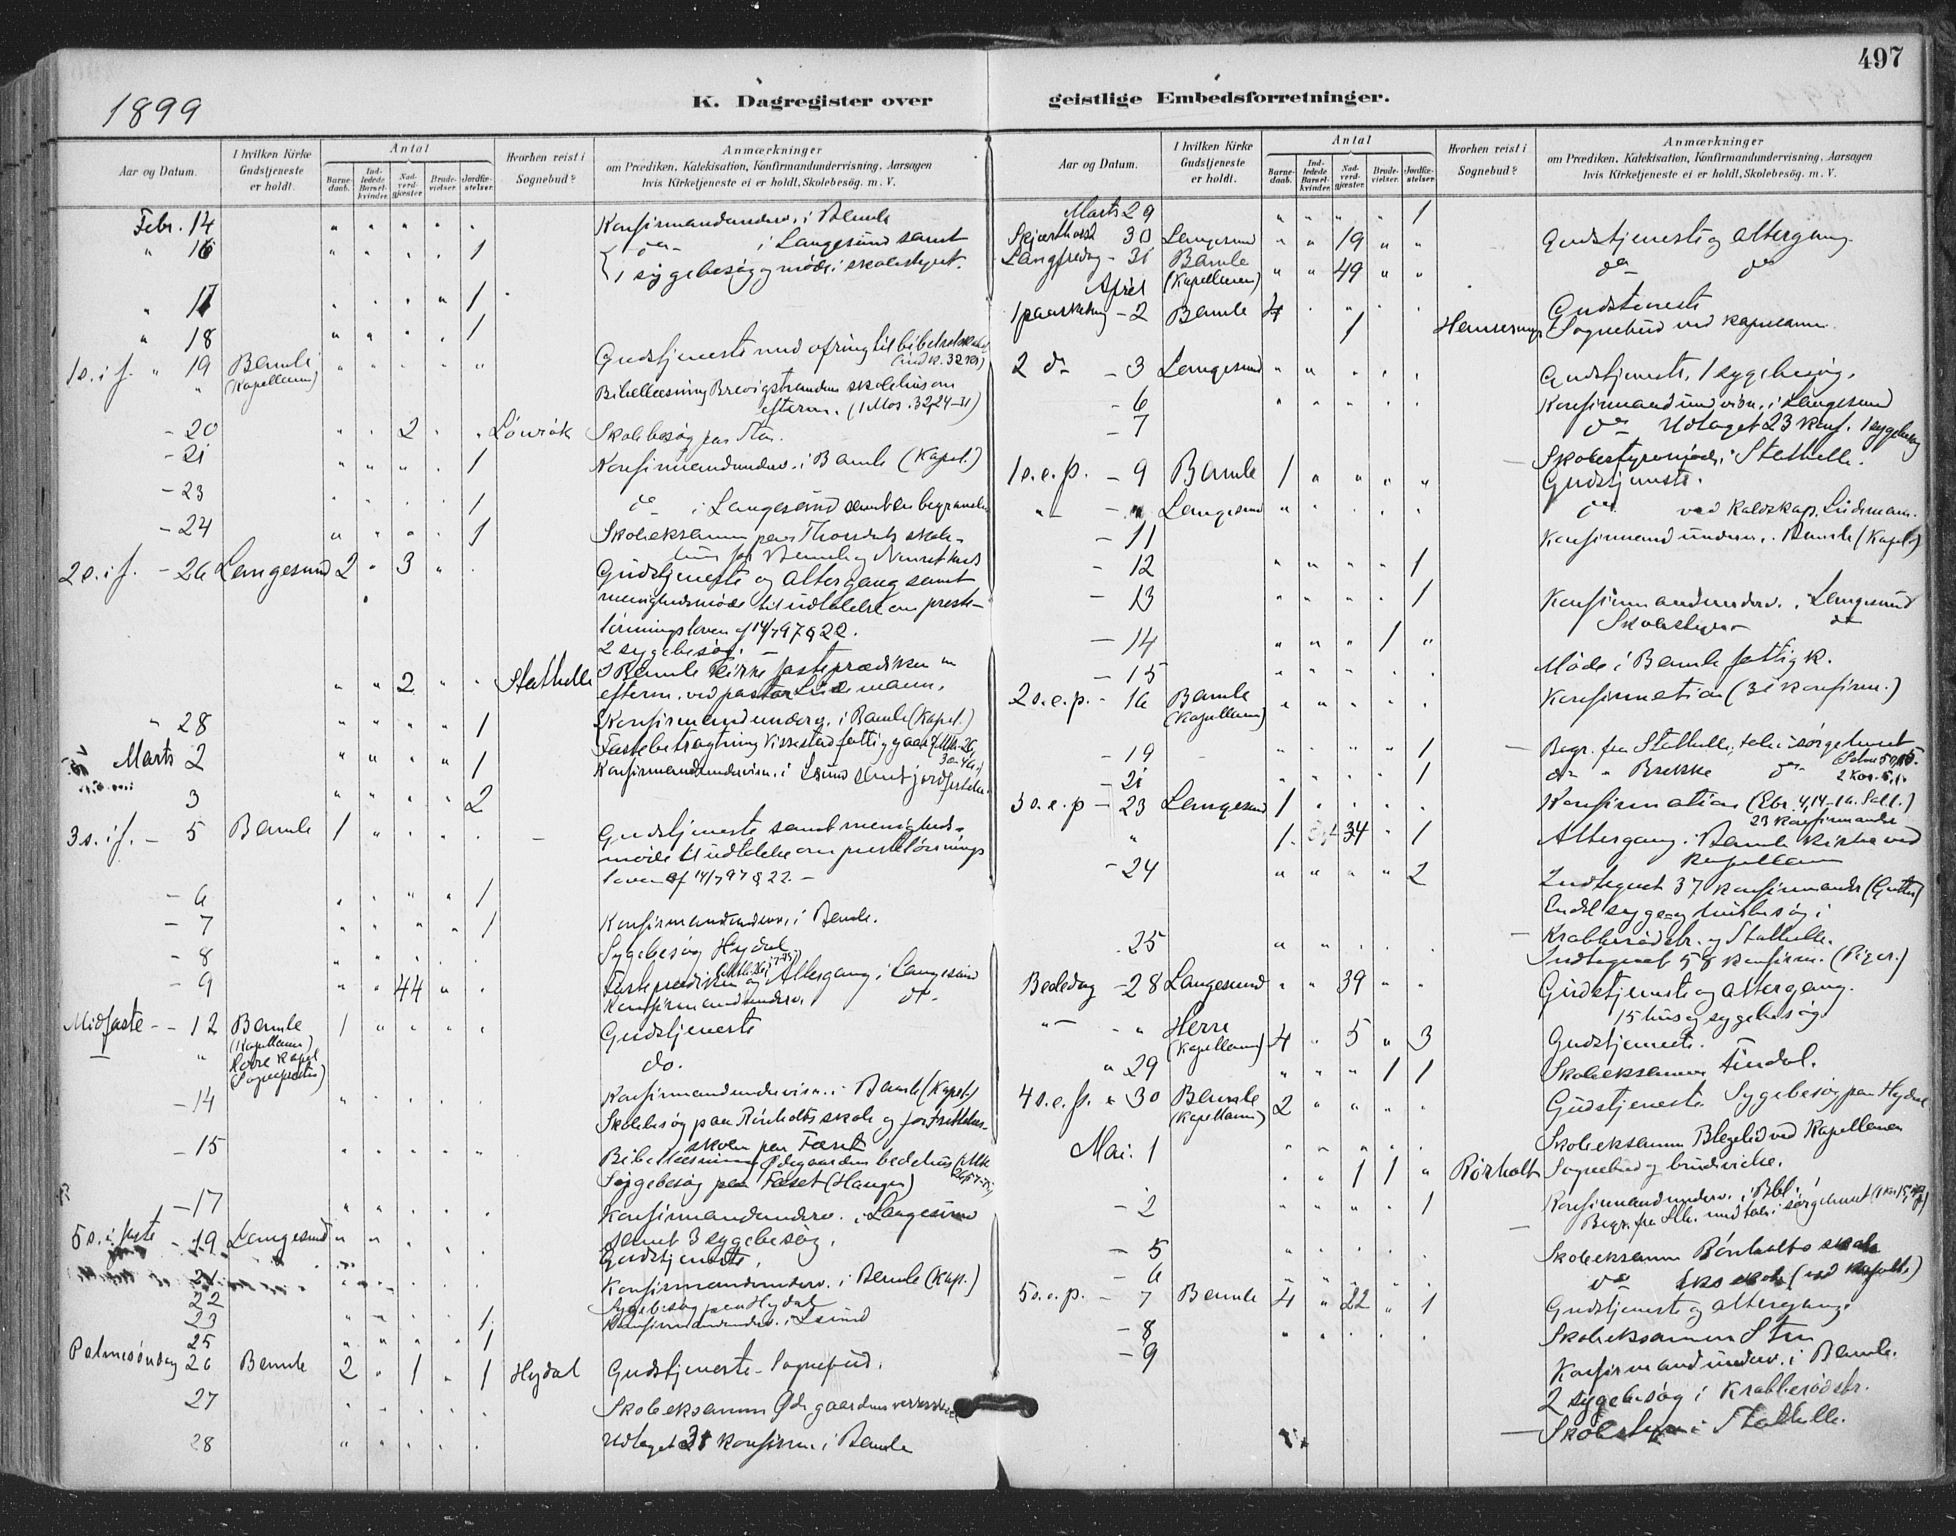 497
1899
K. Dagregister over geistlige Embedsforretninger.
Aar og Datum.
I hvilken Kirke Gudstjeneste er holdt.
Antal
Barnedaab.
Indledede Barselkvinder.
Nadverdgjæster.
Brudevielser.
Jordfæstelser.
Hvorhen reist i Sognebud?
Anmærkninger
om Prædiken, Katekisation, Konfirmandundervisning, Aarsagen
hvis Kirketjeneste ei er holdt, Skolebesøg. m. V.
Febr. 14 " " " " " Konfirmandunderv. i Bamle
" 16 " " " " 1 do i Langesund samt
1 sygebesøg og møde i skolestyret.
" 17 " " " " 1
" 18 " " " " 1
1 s. i f. " 19 Bamle (Kapellanen) " " " " " Gudstjeneste med ofring til bibelselskabet
Bibellæsning Brevigstrandens skolehus om
efterm. (1 Mos. 32,24-31)
- 20 " " 2 " " Lönrök Skolebesøg paa Sten.
- 21 " " " " 1 Konfirmandunderv. i Bamle (Kapel.)
- 23 " " " " 1 do i Langesund samt en begravelse
- 24 " " " " 1 Skoleeksamen paa Thordals skole-
2 s. i f. - 26 Langesund 2 " 3 " " Gudstjeneste og Altergang samt
menighedsmøde til udtalelse om preste-
lønningsloven af 14/7 97 § 22.
2 sygebesøg. -
" " 2 " " Stathelle I Bamle kirke fasteprædiken
efterm. ved pastor Lüdemann.
" 28 " " " " 1 Konfirmandunderv. i Bamle (Kapel.)
Fastebetragtning Vissestad fattiggaard
Marts 2 " " " " 1 Konfirmandundervisn. i Lsund samt jordfæstelse
3 " " " " 2
3 s. i f. - 5 Bamle 1 " " " " Gudstjeneste samt menigheds-
møde til udtalelse om prestelønnings
loven af 14/7 97 § 22. -
- 6 " " " " 1
- 7 " " " " 1 Konfirmandunderv. i Bamle.
- 8 " " " " " Sygebesøg Hydal
- 9 " " 44 " " Fasteprædiken og Altergang i Langesund
Konfirmandunderv. do
Midfaste - 12 Bamle (Kapellanen) 1 " " " " Gudstjeneste
" (Sognepresten) do.
- 14 " " " " " Konfirmandundervisn. i Bamle (Kapel.)
Skolebesøg paa Rönholts skole og
skolen paa Fæset
- 15 " " " " " Bibellæsning Ødegaardens bedehus
Sygebesøg paa Fæset (Haugen)
- 17 " " " " " Konfirmandunderv. i Langesund
samt 3 sygebesøg.
5 s. i faste - 19 Langesund " " " " " Gudstjeneste.
21 Konfirmandunderv. i Bamle (Kap.)
22 Sygebesøg paa Hydal
23 " " " " 1 Konfirmandunderv. i Lsund
25 " " " " 1
Palmesøndag 26 Bamle 2 " 1 " 1 Hydal Gudstjeneste - Sognebud.
27 " " " " " Skoleeksamen Ødegaardens
28 " " " " " Udtaget 31 konfirm. i Bamle
Aar og Datum.
I hvilken Kirke Gudstjeneste er holdt.
Antal
Barnedaab.
Indledede Barselkvinder.
Nadverdgjæster.
Brudevielser.
Jordfæstelser.
Hvorhen reist i Sognebud?
Anmærkninger
om Prædiken, Katekisation, Konfirmandundervisning, Aarsagen
hvis Kirketjeneste ei er holdt, Skolebesøg. m. V.
Marts 29 " " " " 1
Skjærthorsd 30 Langesund " " 19 " " Gudstjeneste og altergang.
Langfredag - 31 Bamle (Kapellanen) " " 49 " " do do
April
1 paaskedag - 2 Bamle 4 " " " " Gudstjeneste
1 Sognebud ved kapellanen.
2 do - 3 Langesund " " " " " Gudstjeneste, 1 sygebesøg.
- 6 " " " " " Konfirmandundervisn. i Langesund
- 7 do Udtaget 23 konf. 1 sygebesøg
Skolestyremøde i Stathelle.
1 s. e. p. - 9 Bamle 1 " " " " Gudstjeneste.
" - " Langesund " " " " " do ved kaldskap. Lüdemann.
- 11 Konfirmandunderv. i Bamle (Kapel.)
- 12 " " " " 1
- 13 " " " " 1 Konfirmandunderv. i Langesund
Skolestyre - do
- 14 " " " 1 "
- 15 " " " " " Møde i Bamle fattigk.
2 s. e. p. - 16 Bamle (Kapellanen) " " " " " Konfirmation (31 konfirm.)
- 19 " " " " 1 Begr. fra Stathelle, tale i sørgehuset
- 21 " " " " 1 do " Brekke do 2 Kor. 5,1.
3 s. e. p - 23 Langesund 1 " " " " Konfirmation (Ebr. 4,14-16.
23 konfirmander
" 1 34 " 1 Altergang i Bamle kirke ved
kapellanen
- 24 " " " " 2 Indtegnet 37 konfirmander (Gutter)
Endel syge- og husbesøg i
Krabberødstr. og Stathelle.
25 " " " " " Indtegnet 58 konfirm. (Piger.)
Bededag - 28 Langesund " " 39 " " Gudstjeneste og altergang.
15 hus og sygebesøg
" - " Herre (Kapellanen) 4 " 5 " 3 Gudstjeneste.
" 29 " " " 1 1 Skoleeksamen Findal.
4 s. e. p. " 30 Bamle (Kapellanen) 2 " " " " Gudstjeneste. Sygebesøg paa Hydal
Mai. 1 " " " " " Skoleeksamen Blegelid ved Kapellanen
" " 1 1 " Rørholt Sognebud og brudevielse.
- 2 " " " " 1 Konfirmandunderv. i Bbl.
Begr. fra Sth. med tale i sørgehuset
- 5 " " " " " Skoleeksamen Rönholts skole
- 6 do (ved kapell.)
5 s. e. p. - 7 Bamle 4 " 22 " 1 Gudstjeneste og altergang.
- 8 " " " " " Skoleeksamen Sten
- 9 Konfirmandunderv. i Bamle.
2 sygebesøg i Krabberødstr.
Skolestyre i Stathelle.